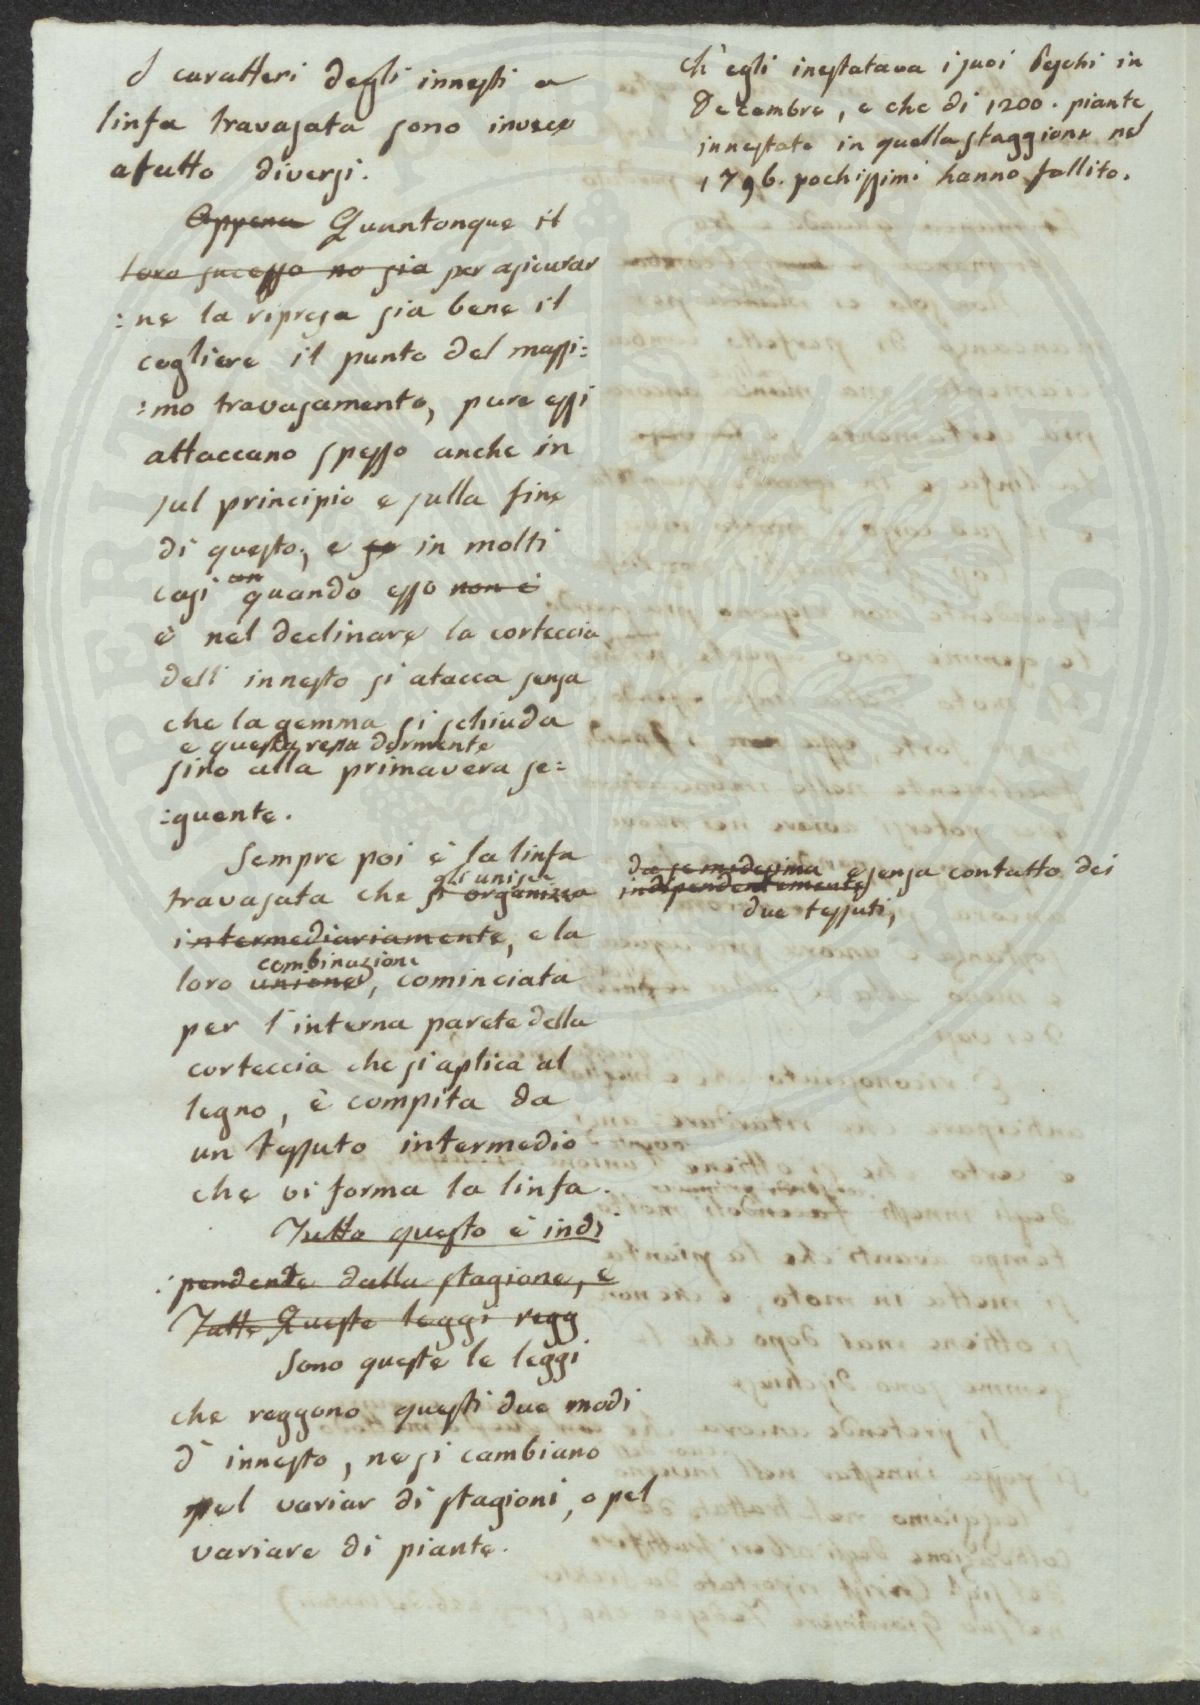 I caratteri degli innesti a
linfa travasata sono invece
afutto diversi.
Appena Quantonque il
loro sucesso no sia per asicurar
:ne la ripresa sia bene il
cogliere il punto del massi:
:mo travasamento, pure essi
attaccano spesso anche in
sul principio e sulla fine
di questo, e se in molti
casi quando esso non è
è nel declinare la corteccia
dell' innesto si atacca senza
che la gemma si schiuda
e questa resta dormente
sino alla primavera se:
:guente.
Sempre poi è la linfa
gli unisce
travasata che si organizza
intermediariamente, e la
combinazione
loro unione, cominciata
per l'interna parete della
corteccia che si aplica al
legno, è compita da
un tessuto intermedio
che vi forma la linfa.
Tutto questo è indi
:pendente dalla stagione, e
Tutte Queste leggi regg
Sono queste le leggi
che reggono questi due modi
d' innesto, ne si cambiano
pel variar di stagioni, o pel
variare di piante.
ch' egli inestatava i suoi Peschi in
Decembre, e che di 1200. piante
innestate in quella staggione nel
1796. pochissimi hanno fallito.
da se medesima e senza contatto dei
indipendentemente
due tessuti,